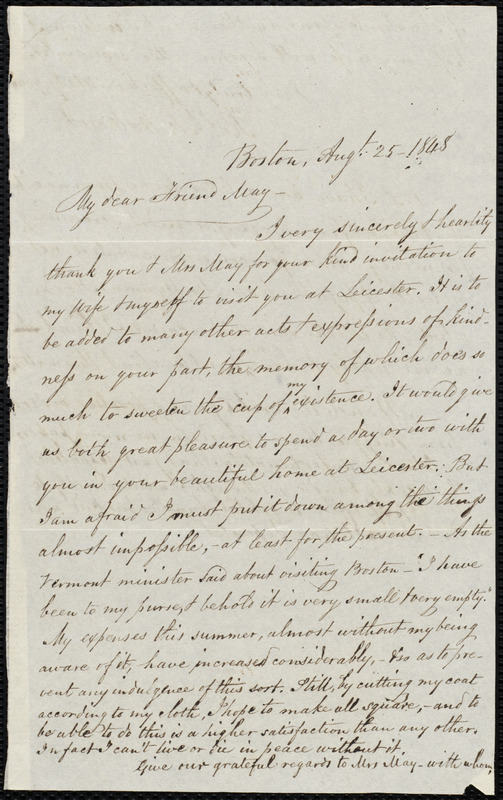 Boston, Augt. 25 - 1848
My dear Friend May -
I very sincerely & heartily
thank you & Mrs May for your kind invitation to
my wife & myself to visit you at Leicester. It is to
be added to many other acts & expressions of kind-
ness on your part, the memory of which does so
much to sweeten the cup of my existence. It would give
us both great pleasure to spend a day or two with
you in your beautiful home at Leicester. But
I am afraid I must put it down among the things
almost impossible, - at least for the present. - As the
Vermont minister said about visiting Boston - "I have
been to my purse, & behold it is very small & very empty."
My expenses this summer, almost without my being
aware of it, have increased considerably, - & so as to pre-
vent any indulgence of this sort. Still, by cutting my coat
according to my cloth, I hope to make all square, - and to
be able to do this is a higher satisfaction than any other.
In fact I can't live or die in peace without it.
Give our grateful regards to Mrs May - with whom,